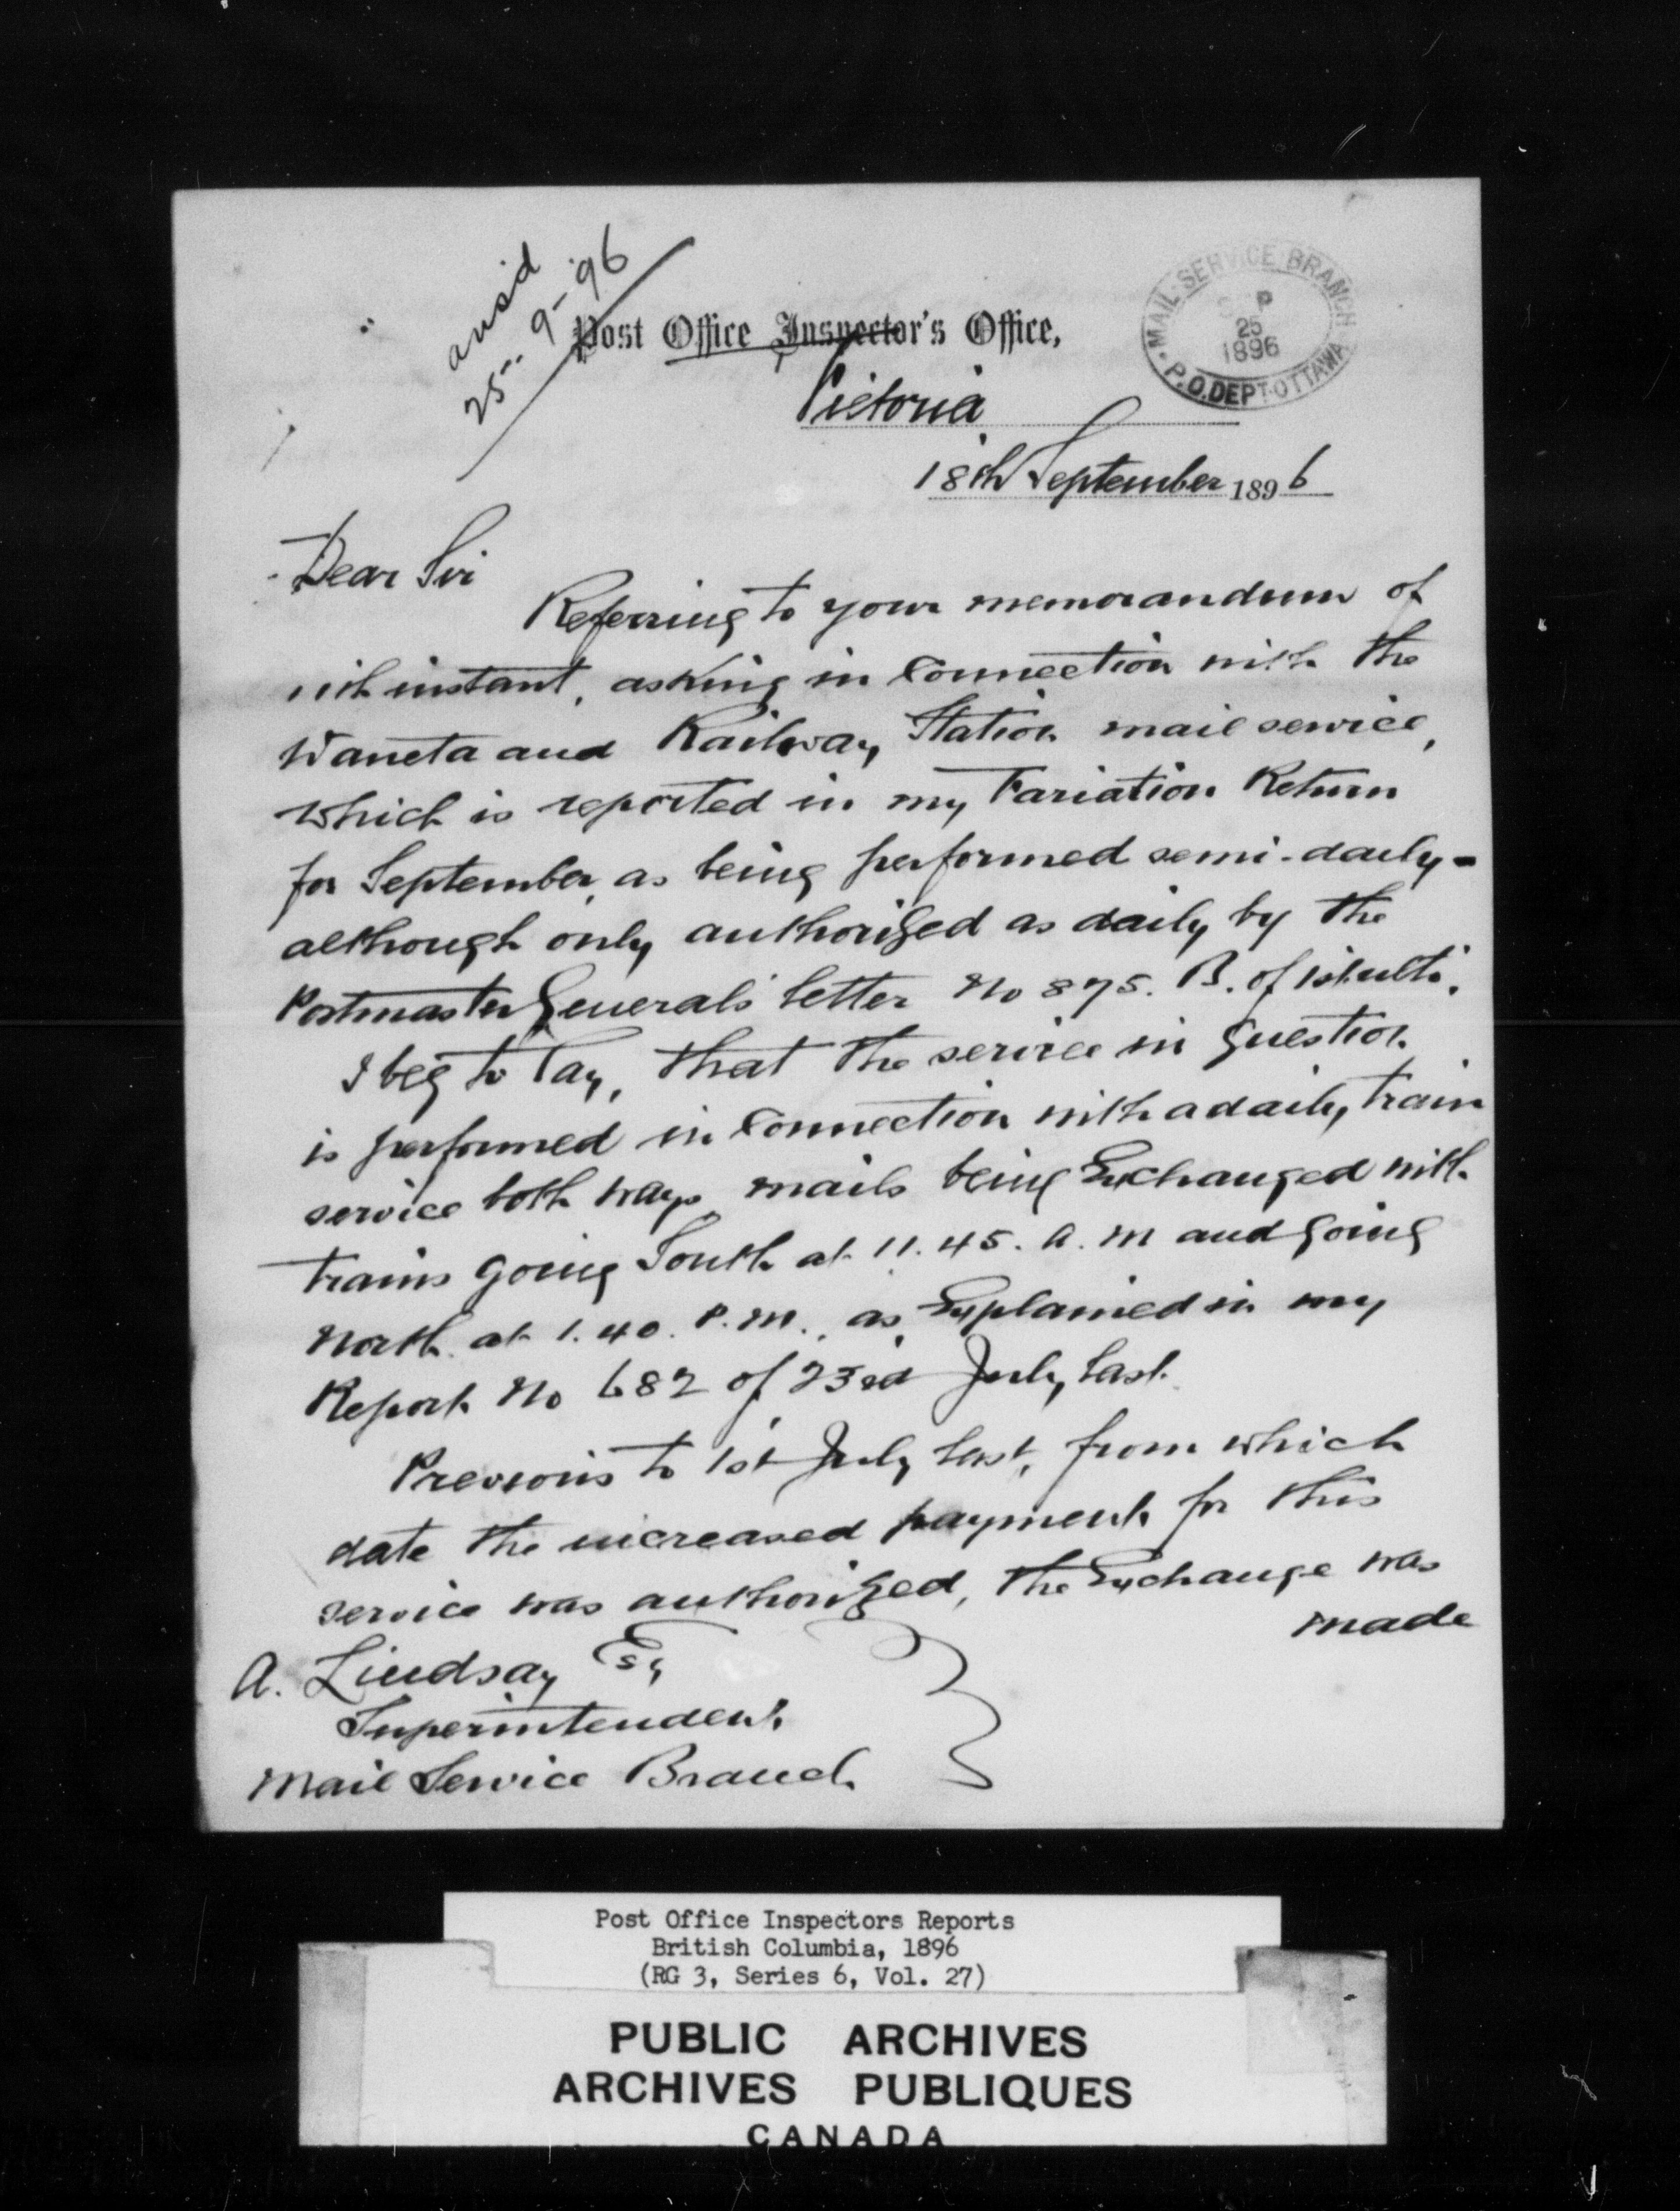 ansd
25-9-'96
Post Office Inspector's Office,
Victoria
18th September 1896
MAIL SERVICE BRANCH
25
1896
P.O. DEPT. OTTAWA
Dear Sir
Referring to your memorandum of
11th instant, asking in Connection with the
Waneta and Railway Station mail service,
which is reported in my Variation Return
for September, as being performed semi-daily -
although only authorized as daily by the
Postmaster General's letter No 875. B. of 1st ulto.
I beg to say, that the service in question
is performed in Connection with a daily train
service both ways, mails being Exchanged with
trains going South at 11.45. A.M and going
North at 1.40. P.M., as Explained in my
Report No 682 of 23rd July last.
Previous to 1st July last, from which
date the increased payment for this
service was authorized, the Exchange was
made
A. Lindsay Esq
Superintendent
Mail Service Branch
Post Office Inspectors Reports
British Columbia, 1896
(RG 3, Series 6, Vol. 27)
PUBLIC ARCHIVES
ARCHIVES PUBLIQUES
CANADA